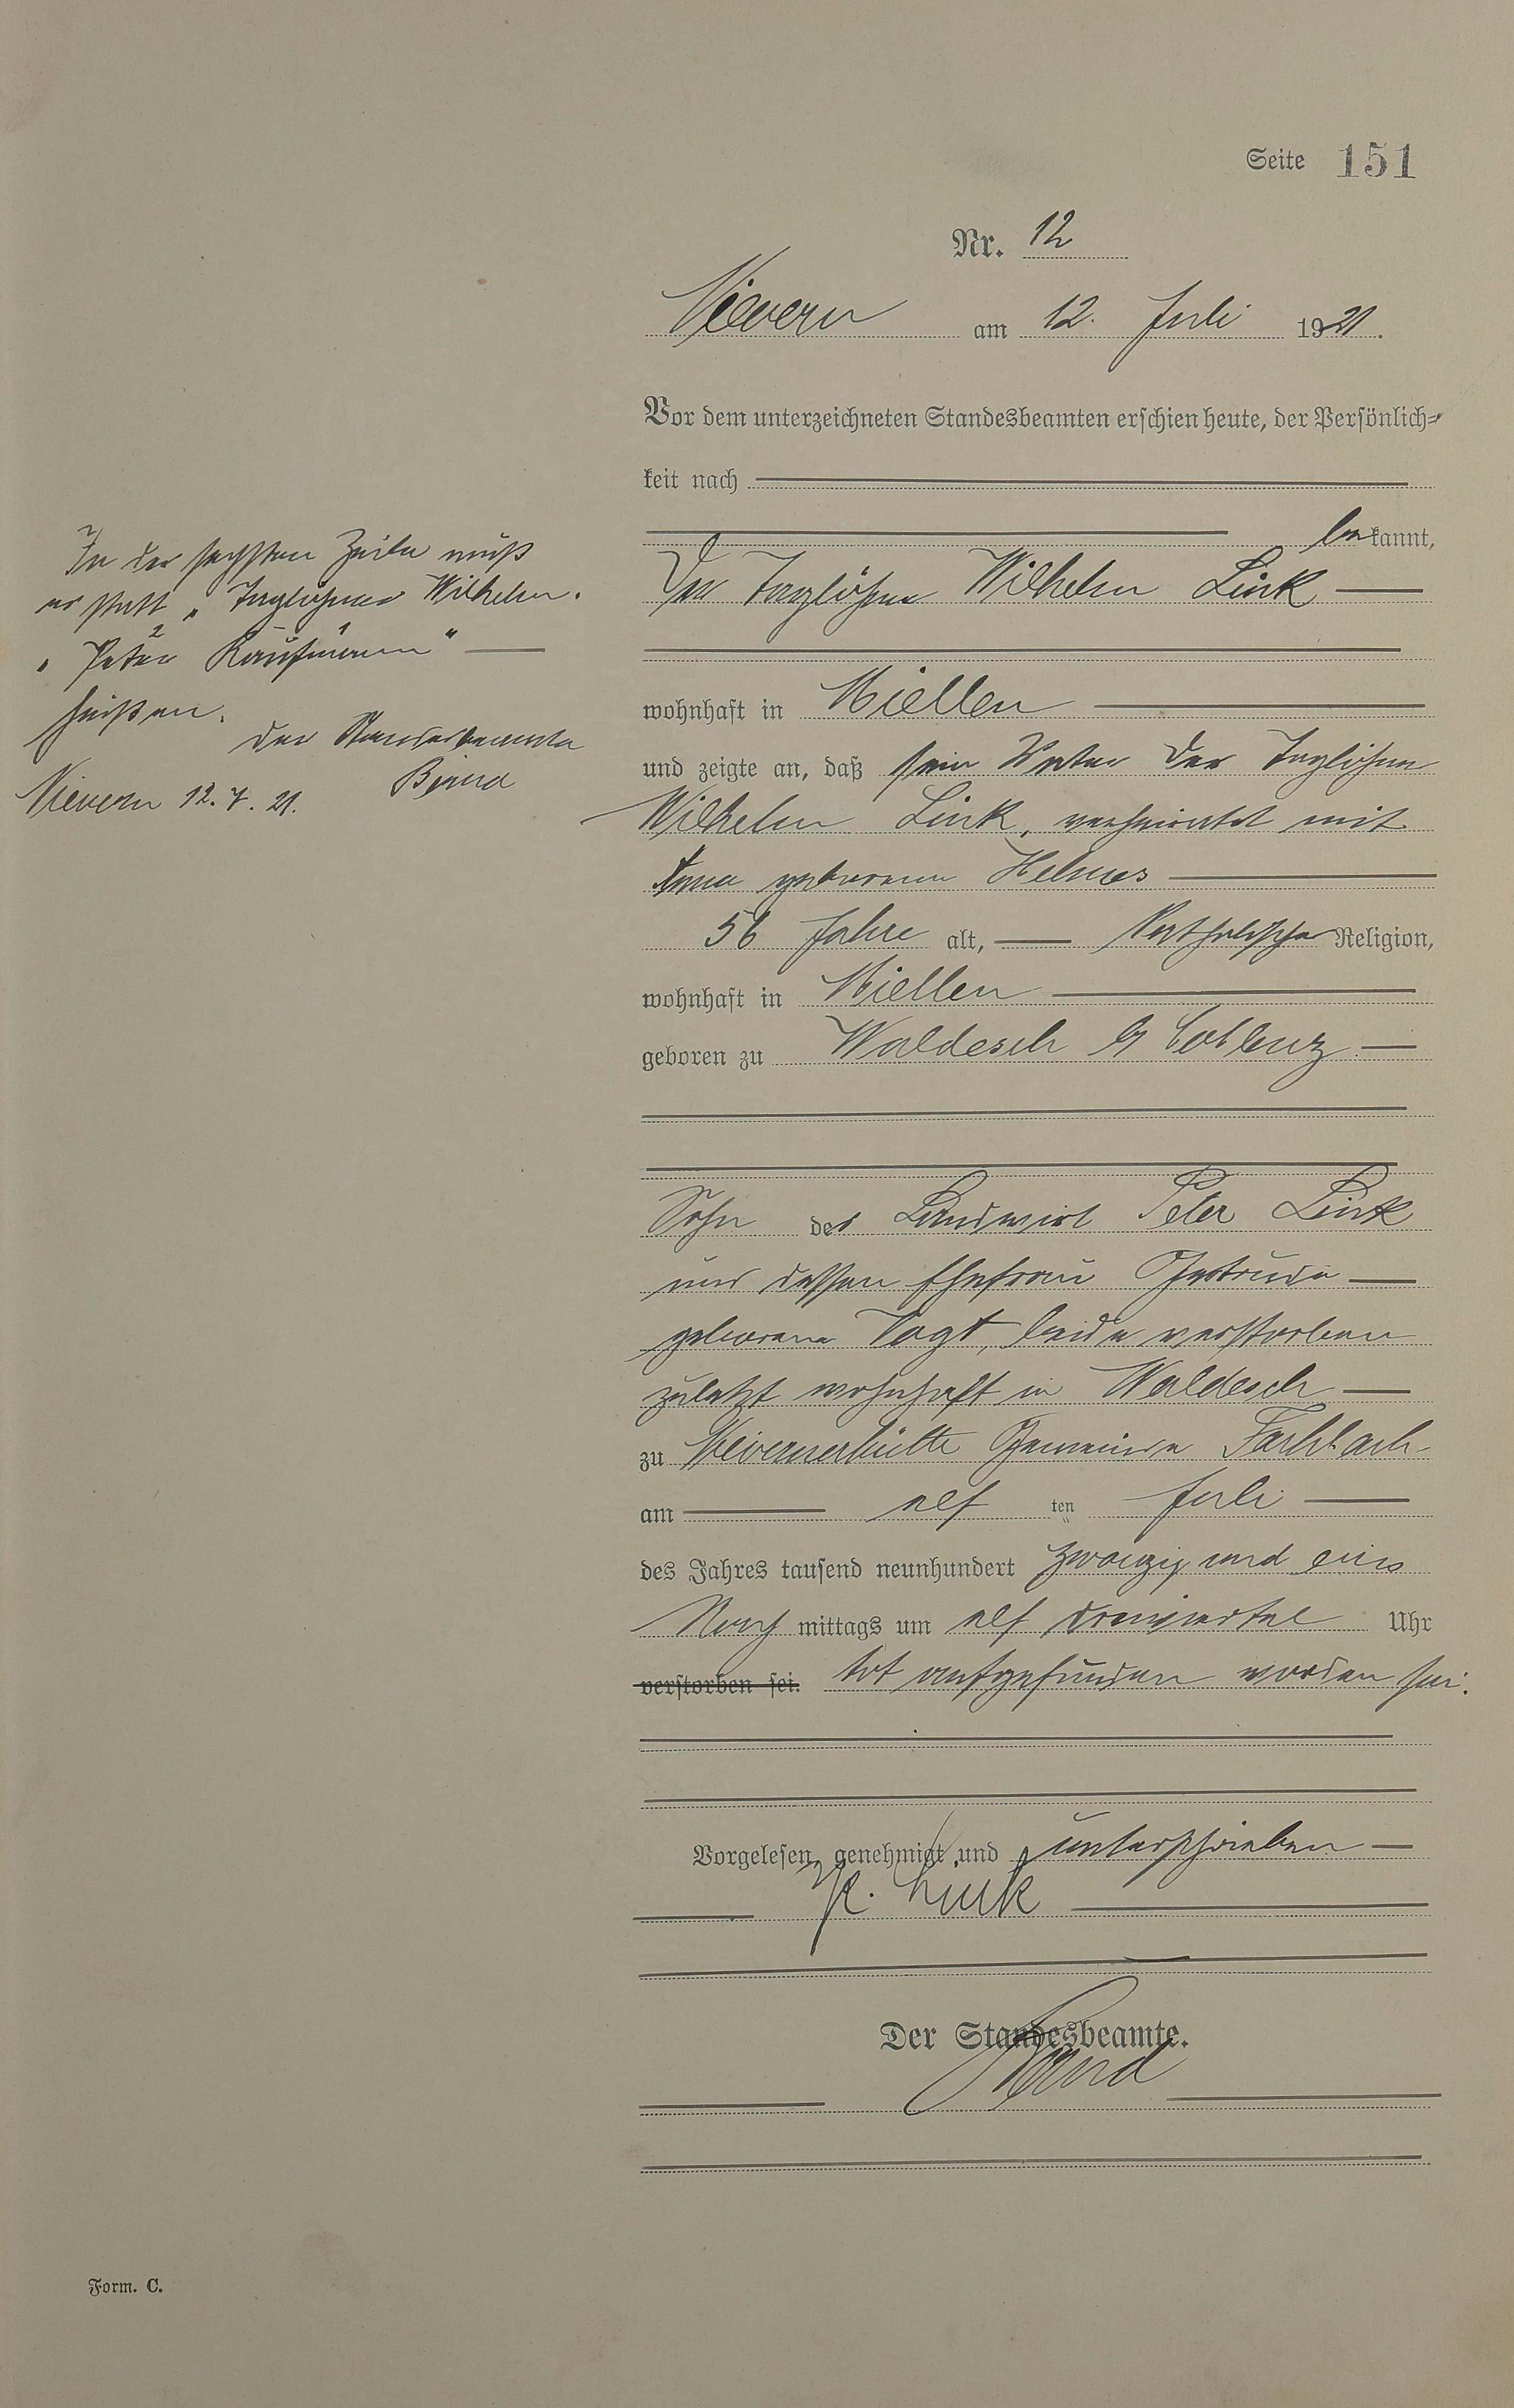 Seite 151
Nr. 12
Nievern am 12. Juli 1921.
Vor dem unterzeichneten Standesbeamten erschien heute, der Persönlich-
keit nach
bekannt,
Der Taglöhner Wilhelm Link
wohnhaft in Miellen
und zeigte an, daß sein Vater der Taglöhner
Wilhelm Link, verheiratet mit
Anna geborenen Helmes
56 Jahre alt, katholischer Religion,
wohnhaft in Miellen
geboren zu Waldesch b/ Coblenz
Sohn des Landwirt Peter Link
und dessen Ehefrau Gertrude
geborene Vogt, beide verstorben
zuletzt wohnhaft in Waldesch
zu Nievernerhütte Gemeinde Fachbach
am elf ten Juli
des Jahres tausend neunhundert zwanzig und eins
Nach mittags um elf dreiviertel Uhr
verstorben sei. tot aufgefunden worden sei.
Vorgelesen, genehmigt und unterschrieben
P. Link
Der Standesbeamte.
In der sechsten Zeile muß
es statt „Taglöhner Wilhelm"
„Peter 2 Kaufmann 1"
heißen.
Der Standesbeamte
Nievern 12.7.21.
Form. C.